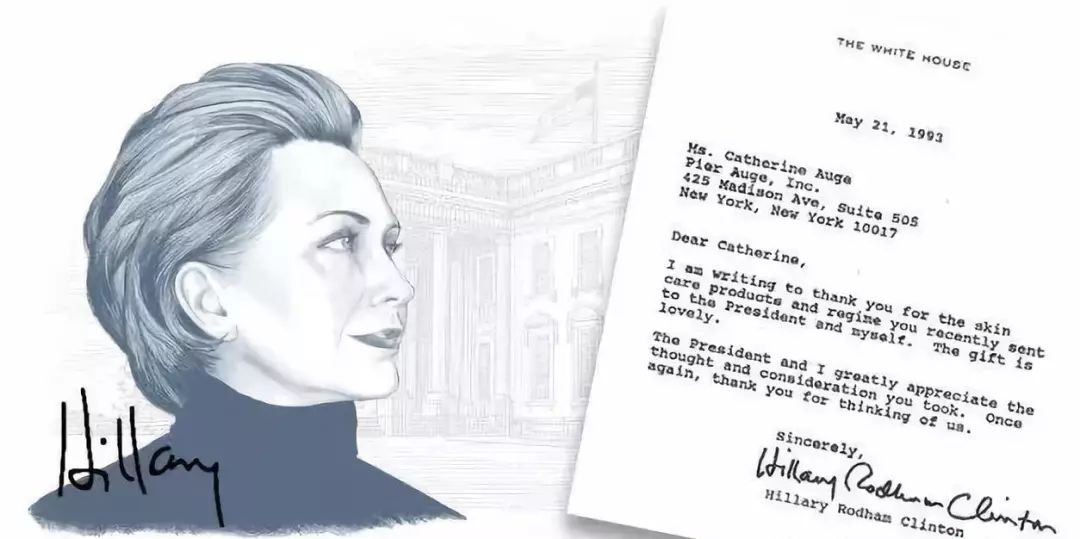 Hillary
THE WHITE HOUSE
May 21, 1993
Ms. Catherine Auge
Pier Auge, Inc.
425 Madison Ave, Suite 505
New York, New York 10017
Dear Catherine,
I am writing to thank you for the skin
care products and regime you recently sent
to the President and myself. The gift is
lovely.
The President and I greatly appreciate the
thought and consideration you took. Once
again, thank you for thinking of us.
Sincerely,
Hillary Rodham Clinton
Hillary Rodham Clinton